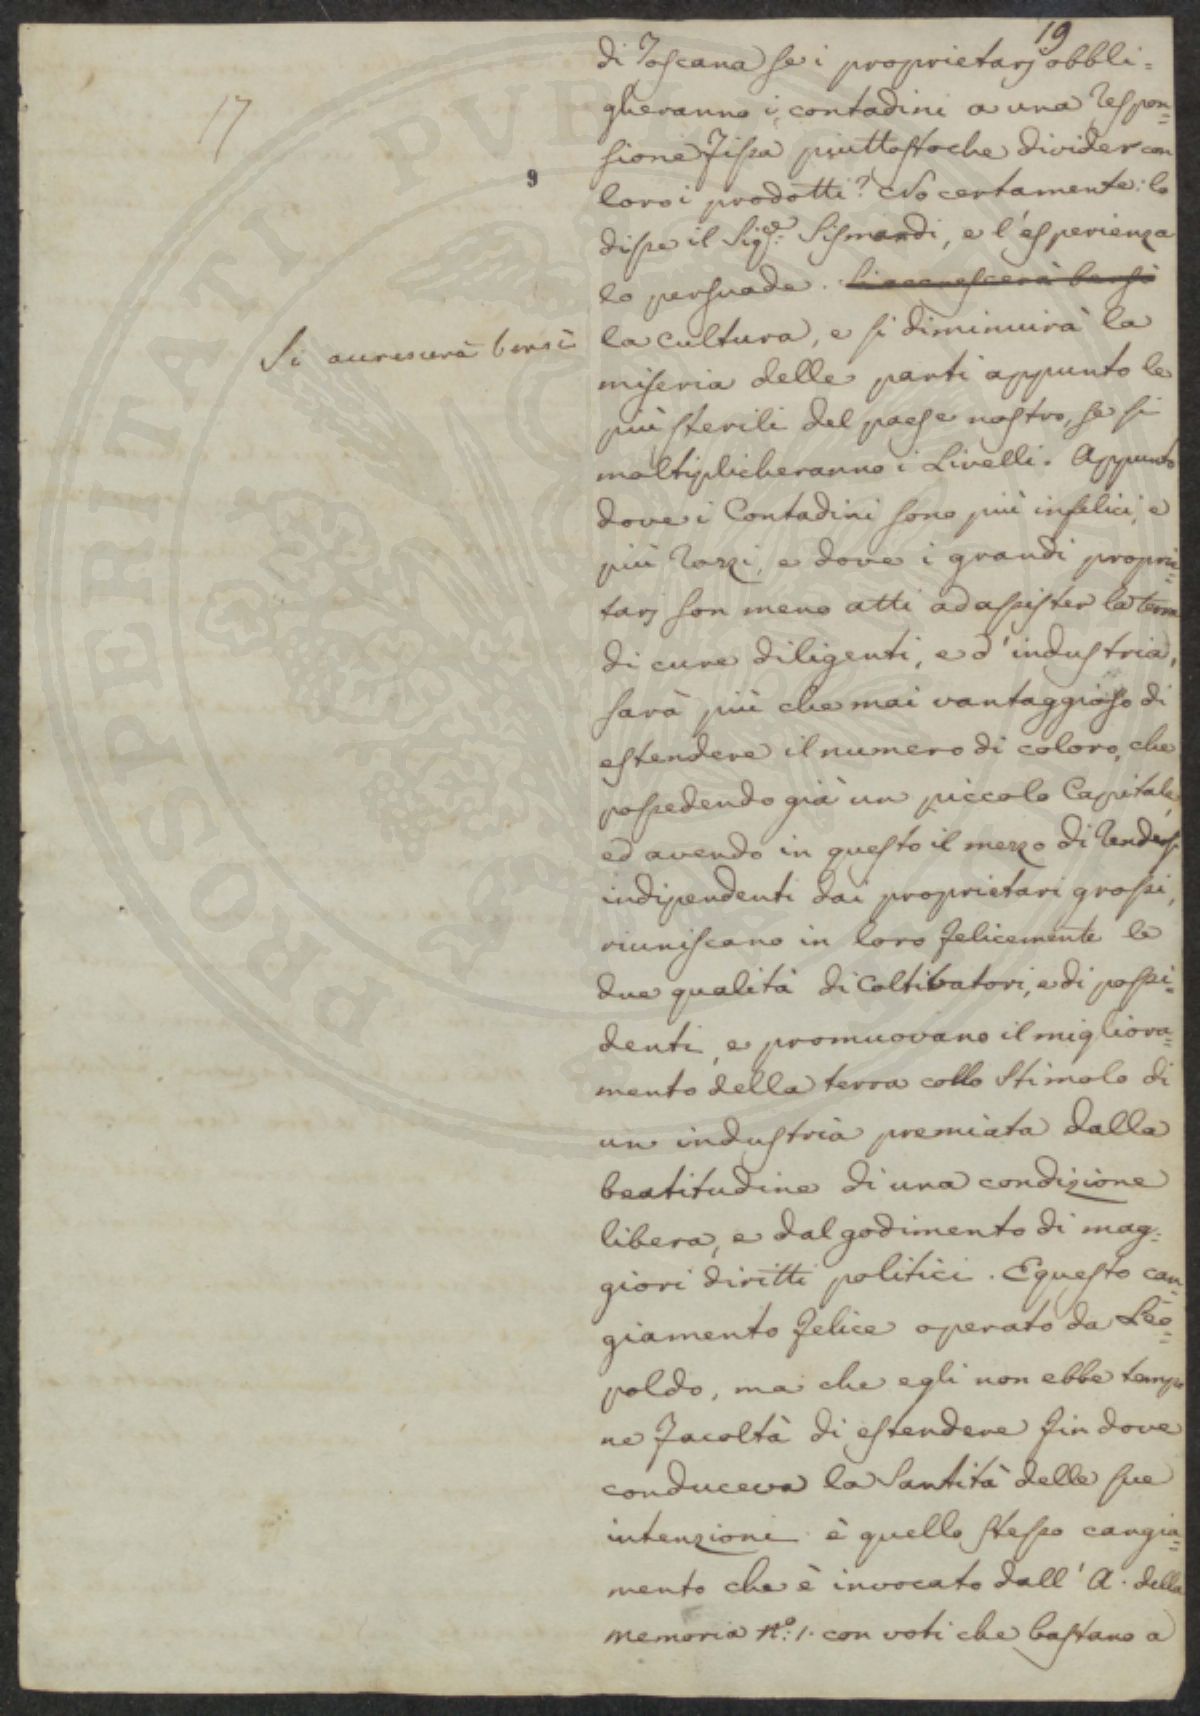 19
17
9
di Toscana se i proprietarj obbli=
gheranno i contadini a una respon=
sione fissa piuttostoche divider con
loro i prodotti? No certamente: lo
disse il Sig.e Sismondi, e l'esperienza
lo persuade. Si accrescerà bensì
Si accrescerà bensì
la cultura, e si diminuirà la
miseria delle parti appunto le
più sterili del paese nostro, se si
moltiplicheranno i Livelli. Appunto
dove i Contadini sono più infelici, e
più rozzi, e dove i grandi proprie=
tarj son meno atti ad assister la terra
di cure diligenti, e d'industria,
sarà più che mai vantaggioso di
estendere il numero di coloro, che
possedendo già un piccolo Capitale,
ed avendo in questo il mezzo di rendersi
indipendenti dai proprietari grossi,
riuniscano in loro felicemente le
due qualità di Coltivatori, e di possi=
denti, e promuovano il migliora=
mento della terra collo stimolo di
un industria premiata dalla
beatitudine di una condizione
libera, e dal godimento di mag=
giori diritti politici. E questo can=
giamento felice operato da Leo=
poldo, ma che egli non ebbe tempo
ne facoltà di estendere fin dove
conduceva la Santità delle sue
intenzioni è quello stesso cangia=
mento che è invocato dall'A. della
memoria N.o 1. con voti che bastano a
PROSPERITATI PVBL